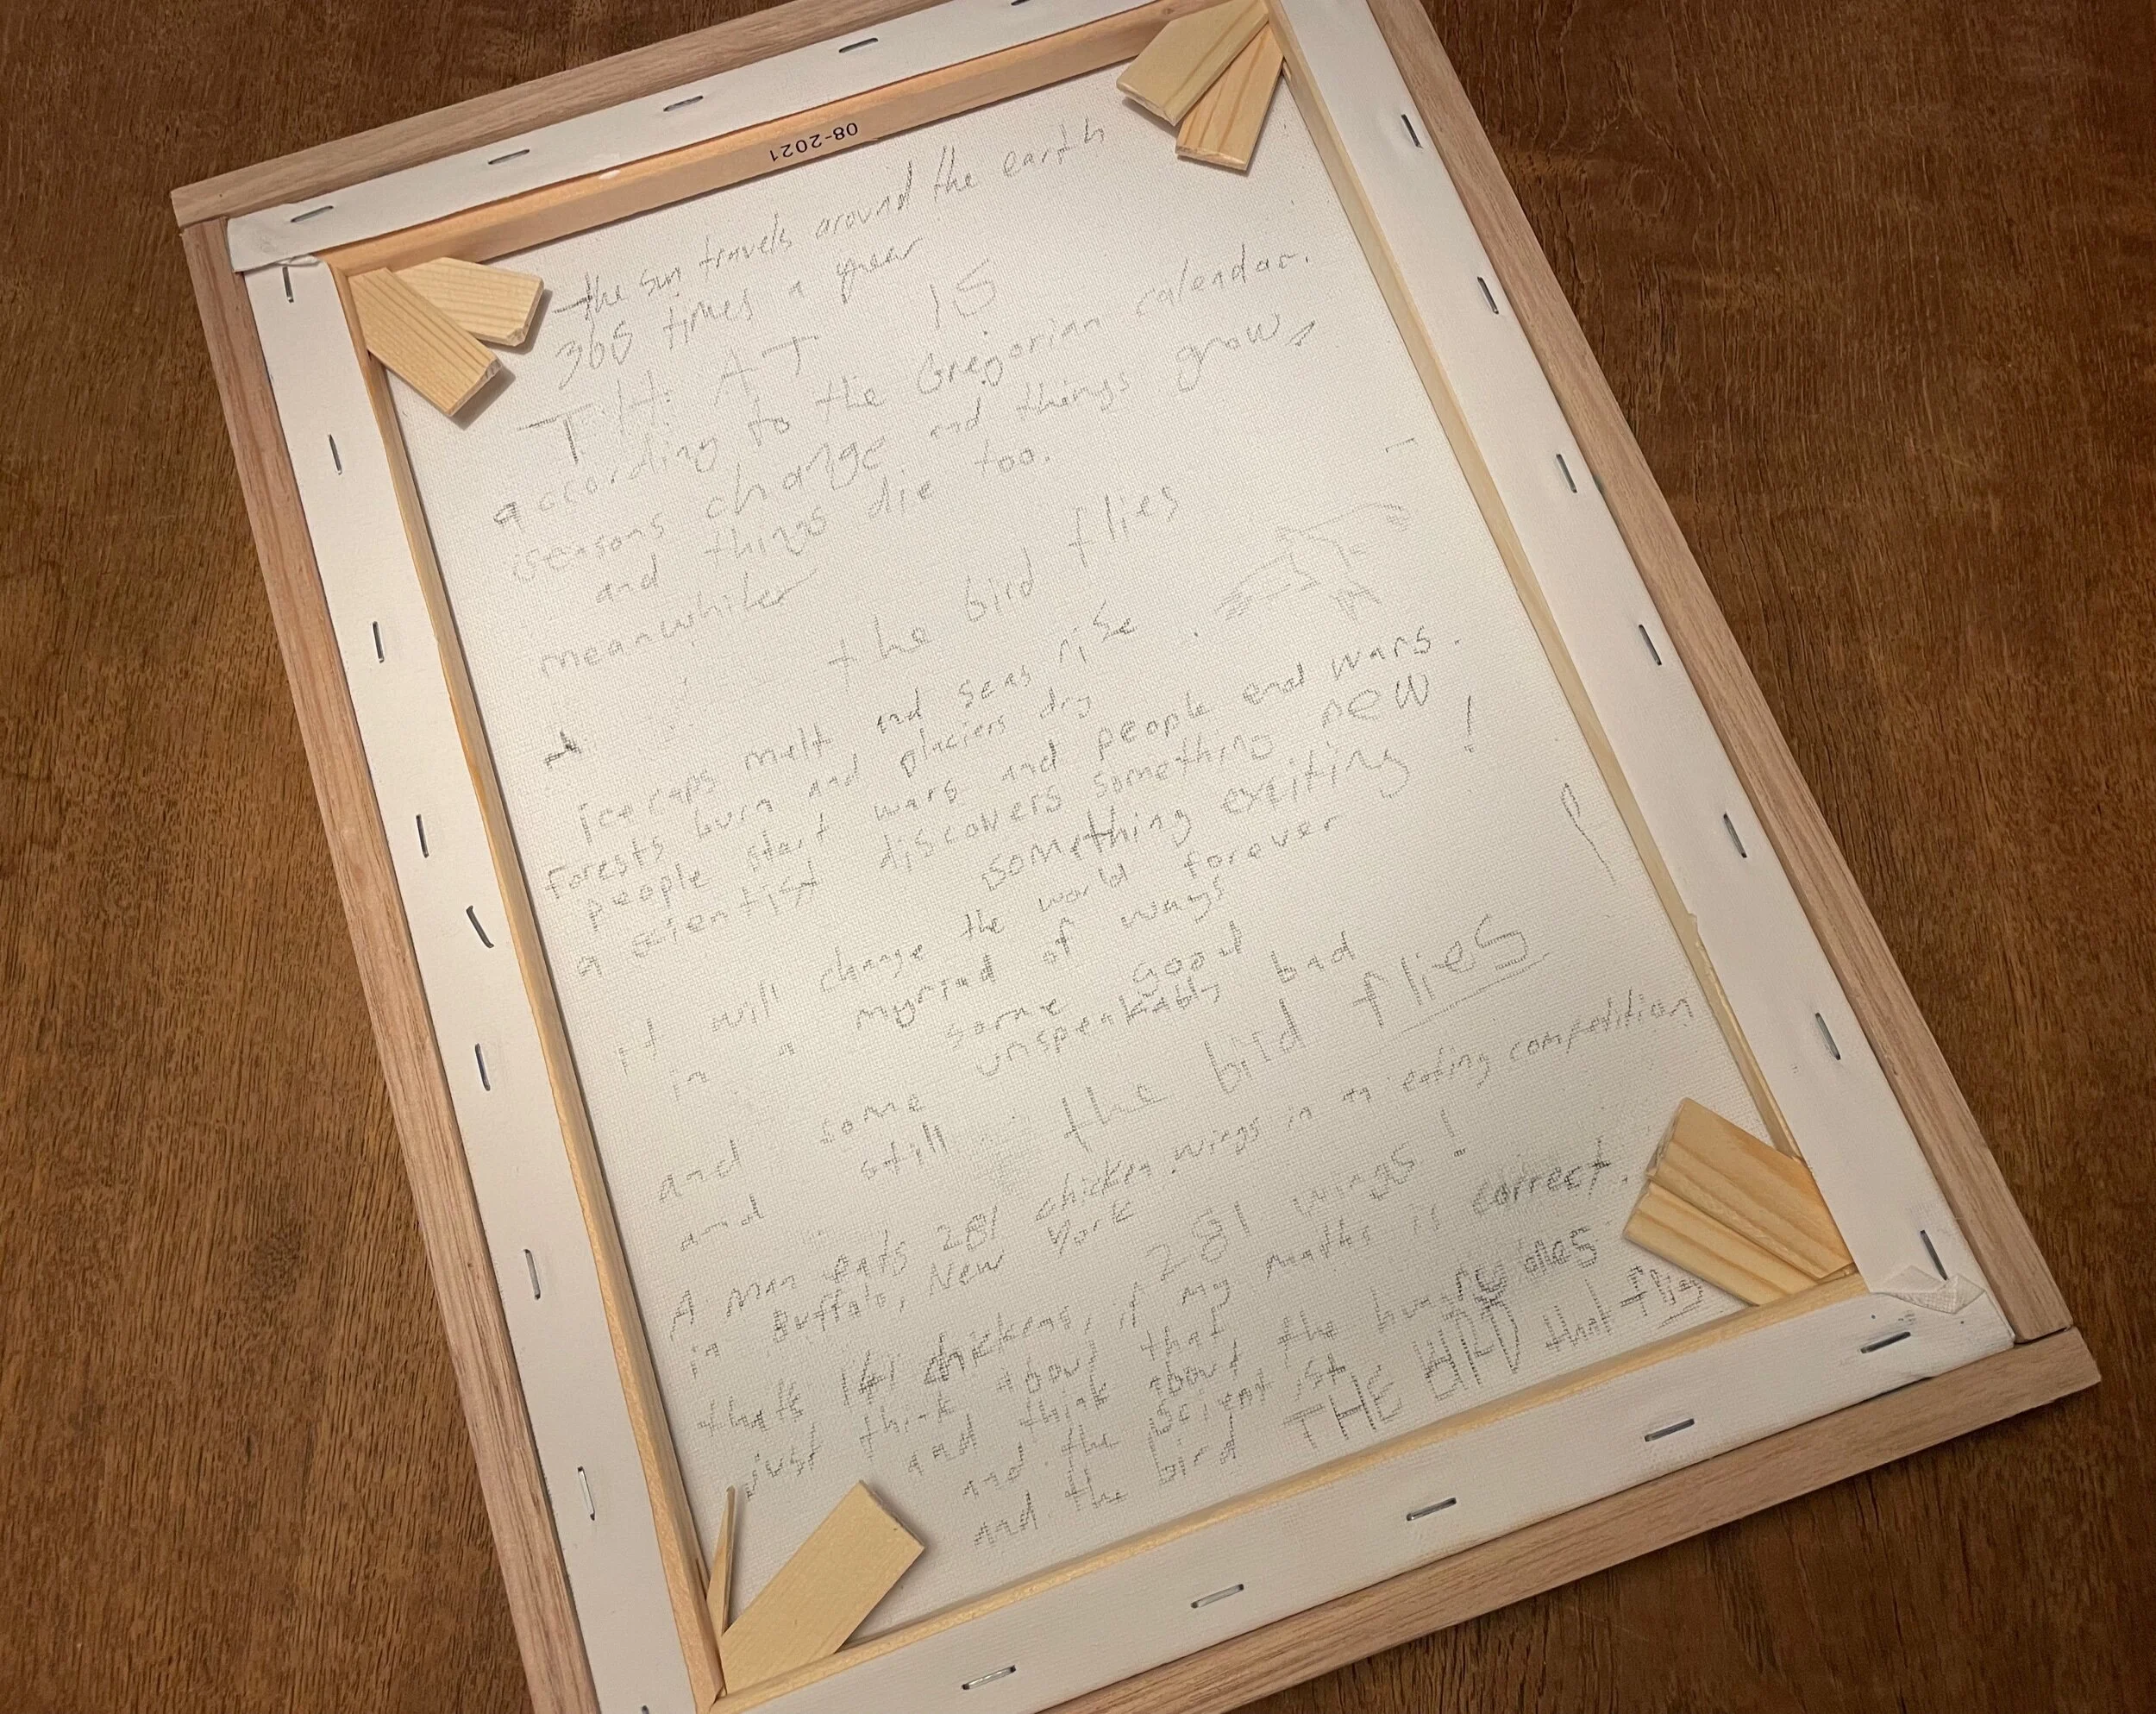 08-2021
the sun travels around the earth
365 times a year
THAT IS
according to the Gregorian calendar.
seasons change and things grow
and things die too.
meanwhile
the bird flies
icecaps melt and seas rise
forests burn and glaciers dry
people start wars and people end wars.
a scientist discovers something new
something exciting!
it will change the world forever
in a myriad of ways
some good
and some unspeakably bad
and still the bird flies
A man eats 281 chicken wings in an eating competition
in Buffalo, New York
281 wings!
thats 141 chickens, if my maths is correct.
just think about that
and think about the hungry ones
and the scientist
and the bird THE BIRD that flies